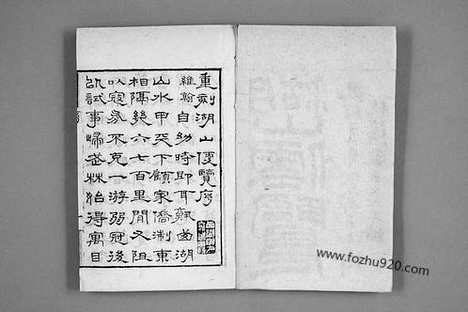 重刻湖山便覽序
維翰自幼時即耳熟西湖
山水甲天下顧家僑淛東
相隔絶六七百里間又阻
以寇氛不克一游弱冠後
試事歸武林始得寓目
www.fozhu920.com